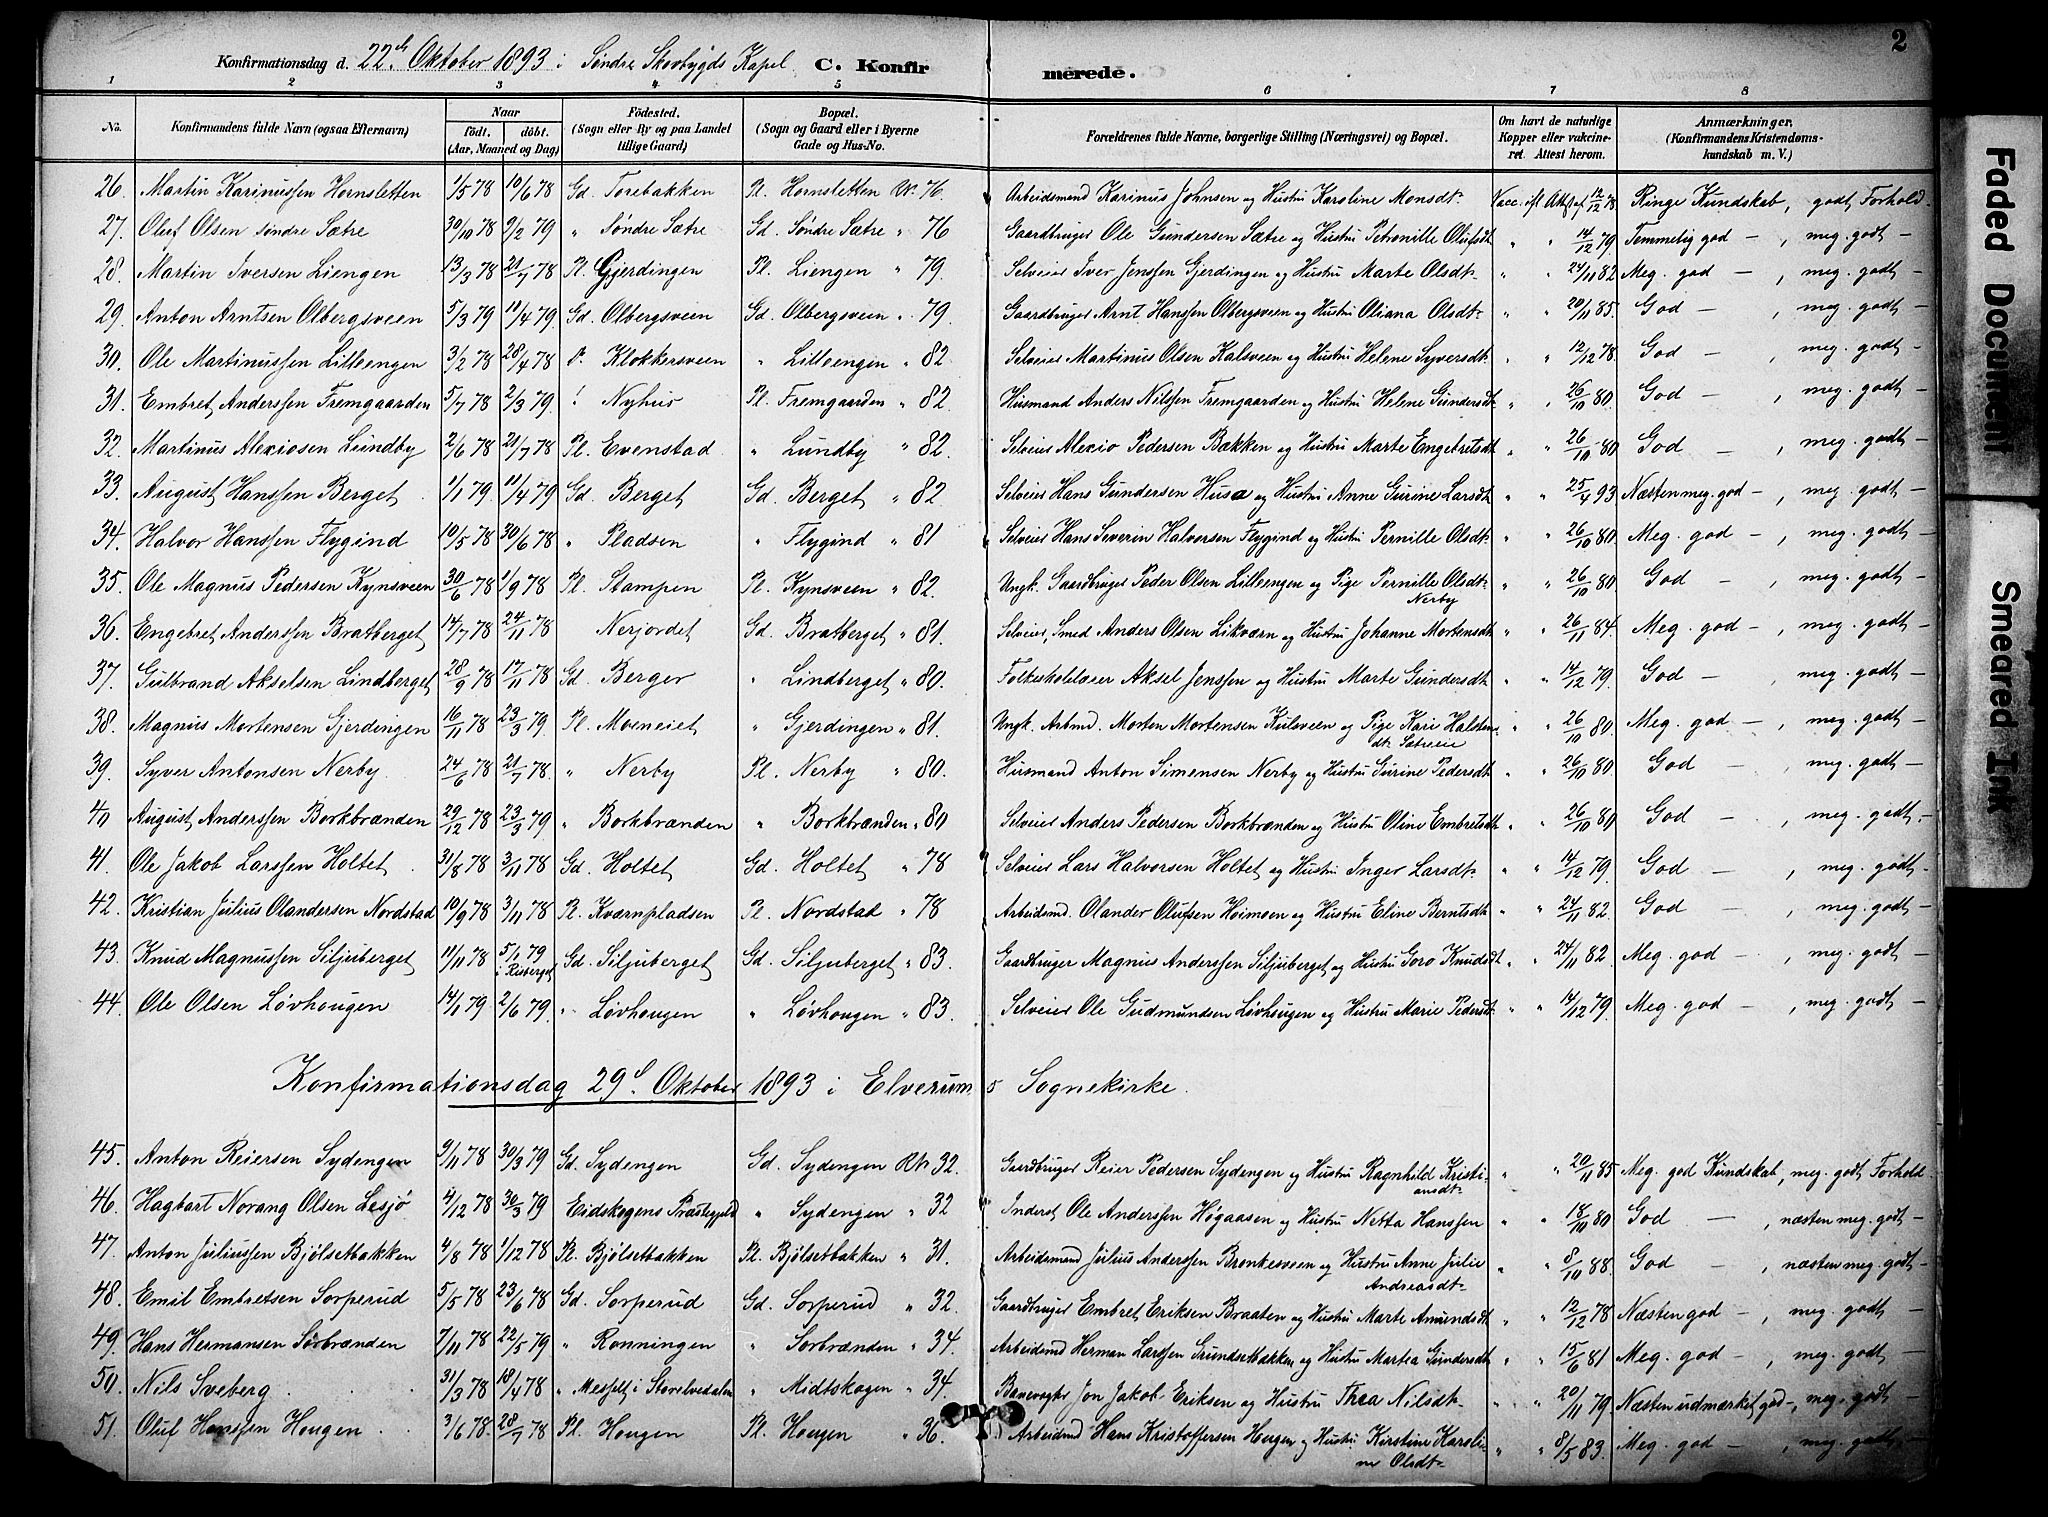 2
Konfirmationsdag d. 22de Oktober 1893 i Søndre Skovbygds Kapel. C. Konfirmerede.
1 2 3 4 5 6 7 8
No. Konfirmandens fulde Navn (ogsaa Efternavn) Naar født. døbt. (Aar, Maaned og Dag) Födested. (Sogn eller By og paa Landet tillige Gaard) Bopæl. (Sogn og Gaard eller i Byerne Gade og Hus-No. Forældrenes fulde Navne, borgerlige Stilling (Næringsvei) og Bopæl. Om havt de naturlige Kopper eller vakcineret. Attest herom. Anmærkninger. (Konfirmandens Kristendomskundskab m. V.)
26. Martin Karinussen Hornsletten 1/5 78 10/6 78 Gd. Torebakken Pl. Hornsletten Rk. 76. Arbeidsmand Karinus Johnsen og Hustru Karoline Monsdt. Vacc. ift. Att. af 12/12 78. Ringe Kundskab, godt Forhold
27. Oluf Olsen søndre Sætre 30/10 78 9/2 79 " Søndre Sætre Gd. Søndre Sætre " 76 Gaardbruger Ole Gundersen Sætre og Hustru Petronille Olufsdt. " " 14/12 79 Temmelig god — , meg. godt —
28. Martin Iversen Liengen 13/3 78 21/7 78 Pl. Gjerdingen Pl. Liengen " 79. Selveier Iver Jenssen Gjerdingen og Hustru Marte Olsdt. " " 24/11 82 Meg. god — , meg. godt —
29. Anton Arntsen Olbergsveen 5/3 79 11/4 79. Gd. Olbergsveen Gd. Olbergsveen " 79. Gaardbruger Arnt Hanssen Olbergsveen og Hustru Oliana Olsdt. " " 20/11 85. God — , meg. godt —
30. Ole Martinussen Lilleengen 3/2 78 28/4 78 Klokkersveen " Lilleengen " 82 Selveier Martinus Olsen Kalsveen og Hustru Helene Syversdt. " " 12/12 78. God — , meg. godt —
31. Embret Anderssen Fremgaarden 5/7 78 2/3 79. Nyhus Pl. Fremgaarden " 82. Husmand Anders Nilssen Fremgaarden og Hustru Helene Gundersdt. " " 26/10 80. God — , meg. godt —
32. Martinus Alexiosen Lundby 2/6 78 21/7 78 Pl. Evenstad " Lundby " 82. Selveier Alexio Pedersen Bækken og Hustru Marte Engebretsdt. " " 26/10 80 God — , meg. godt —
33. August Hanssen Berget 1/1 79. 11/4 79 Gd. Berget Gd. Berget " 82 Selveier Hans Gundersen Husa og Hustru Anne Gurine Larsdt. " " 25/4 93 Næsten meg. god — , meg. godt —
34. Halvor Hanssen Flygind 10/5 78 30/6 78 " Pladsen " Flygind " 81 Selveier Hans Severin Halvorsen Flygind og Hustru Pernille Olsdt. " " 26/10 80. Meg. god — , meg. godt —
35. Ole Magnus Pedersen Kynsveen 30/6 78 1/9 78 Pl. Stampen Pl. Kynsveen " 82. Ungk. Gaardbruger Peder Olsen Lilleengen og Pige Pernille Olsdt. Nerby " " 26/10 80 God — , meg. godt —
36. Engebret Anderssen Bratberget 14/7 78 24/11 78 Nerjordet Gd. Bratberget " 81. Selveier, Smed Anders Olsen Likværn og Hustru Johanne Mortensdt. " " 26/11 84. Meg. god — , meg. godt —
37. Gulbrand Akselsen Lindberget 28/9 78 17/11 78 Gd. Berger " Lindberget " 80. Folkeskolelærer Aksel Jenssen og Hustru Marte Gundersdt. " " 14/12 79. God — , meg. godt —
38. Magnus Mortensen Gjerdingen 16/11 78 23/3 79. Pl. Moeneiet " Gjerdingen " 81. Ungk. Arbmd. Morten Mortensen Kulsveen og Pige Kari Halstensdt. Sætreeie " " 26/10 80. Meg. god — , meg. godt —
39. Syver Antonsen Nerby. 24/6 78 21/7 78. " Nerby Pl. Nerby " 80. Husmand Anton Simensen Nerby og Hustru Gurine Pedersdt. " " 26/10 80 God — , meg. godt —
40 August Anderssen Borkbrænden 29/12 78 23/3 79 " Borkbrænden " Borkbrænden " 80 Selveier Anders Pedersen Borkbrænden og Hustru Oline Embretsdt. " " 26/10 80 God — , meg. godt —
41. Ole Jakob Larssen Holtet 31/8 78 3/11 78 Gd. Holtet Gd. Holtet " 78 Selveier Lars Halvorsen Holtet og Hustru Inger Larsdt. " " 14/12 79. God — , meg. godt —
42. Kristian Julius Olandersen Nordstad 10/9 78 3/11 78 Pl. Kværnpladsen Pl. Nordstad " 78 Arbeidsmd. Olander Olufsen Høimoen og Hustru Eline Berntsdt. " " 24/11 82. God — , meg. godt —
43. Knud Magnussen Siljuberget 11/11 78 5/1 79 i Risberget Gd. Siljuberget Gd. Siljuberget " 83. Gaardbruger Magnus Anderssen Siljuberget og Hustru Goro Knudsdt. " " 24/11 82. Meg. god — , meg. godt —
44. Ole Olsen Løvhougen 14/1 79 2/6 79. " Løvhougen " Løvhougen " 83. Selveier Ole Gudmundsen Løvhougen og Hustru Marie Pedersdt. " " 14/12 79. Meg. god — , meg. godt —
Konfirmationsdag 29de Oktober 1893 i Elverums Sognekirke.
45. Anton Reiersen Sydengen 9/11 78 30/3 79 Gd. Sydengen Gd. Sydengen Rk. 32. Gaardbruger Reier Pedersen Sydengen og Hustru Ragnhild Kristiansdt. " " 20/11 85 Meg. god Kundskab, meg. godt Forhold
46. Hagbart Norang Olsen Lesjø 4/12 78 30/3 79 Eidskogens Præstegjeld " Sydengen " 32 Inderst Ole Anderssen Høgaasen og Hustru Netta Hanssen " " 18/10 80 God — , næsten meg. godt —
47. Anton Juliussen Bjølsetbakken 4/8 78 1/12 78 Pl. Bjølsetbakken Pl. Bjølsetbakken " 31. Arbeidsmd Julius Anderssen Bronkesveen og Hustru Anne Julie Andreasdt. " " 8/10 88. God — , næsten meg. godt —
48. Emil Embretsen Sorperud 5/5 78 23/6 78 Gd. Sorperud Gd. Sorperud " 32. Gaardbruger Embret Eriksen Braaten og Hustru Marte Amundsdt. " " 12/12 78 Næsten god — , meg. godt —
49. Hans Hermansen Sorbrænden 7/11 78 22/5 79 " Ronningen " Sorbrænden " 34. Arbeidsmd Herman Larssen Grundsetbakken og Hustru Martea Gundersdt. " " 15/6 81 Meg. god — , meg. godt —
50. Nils Sveberg. 31/3 78 18/4 78 " Mesfelt i Storelvedalen " Midtskogen " 34. Banevogter Jon Jakob Eriksen og Hustru Thea Nilsdt. " " 20/11 79 Næsten udmærket god —, meg. godt —
51. Oluf Hanssen Hougen 3/6 78. 28/7 78 Pl. Hougen Pl. Hougen " 36. Arbeidsmd Hans Kristoffersen Hougen og Hustru Kirstine Karoline Olsdt. " " 8/5 83. Meg. god — , meg. godt —
Faded Document
Smeared Ink